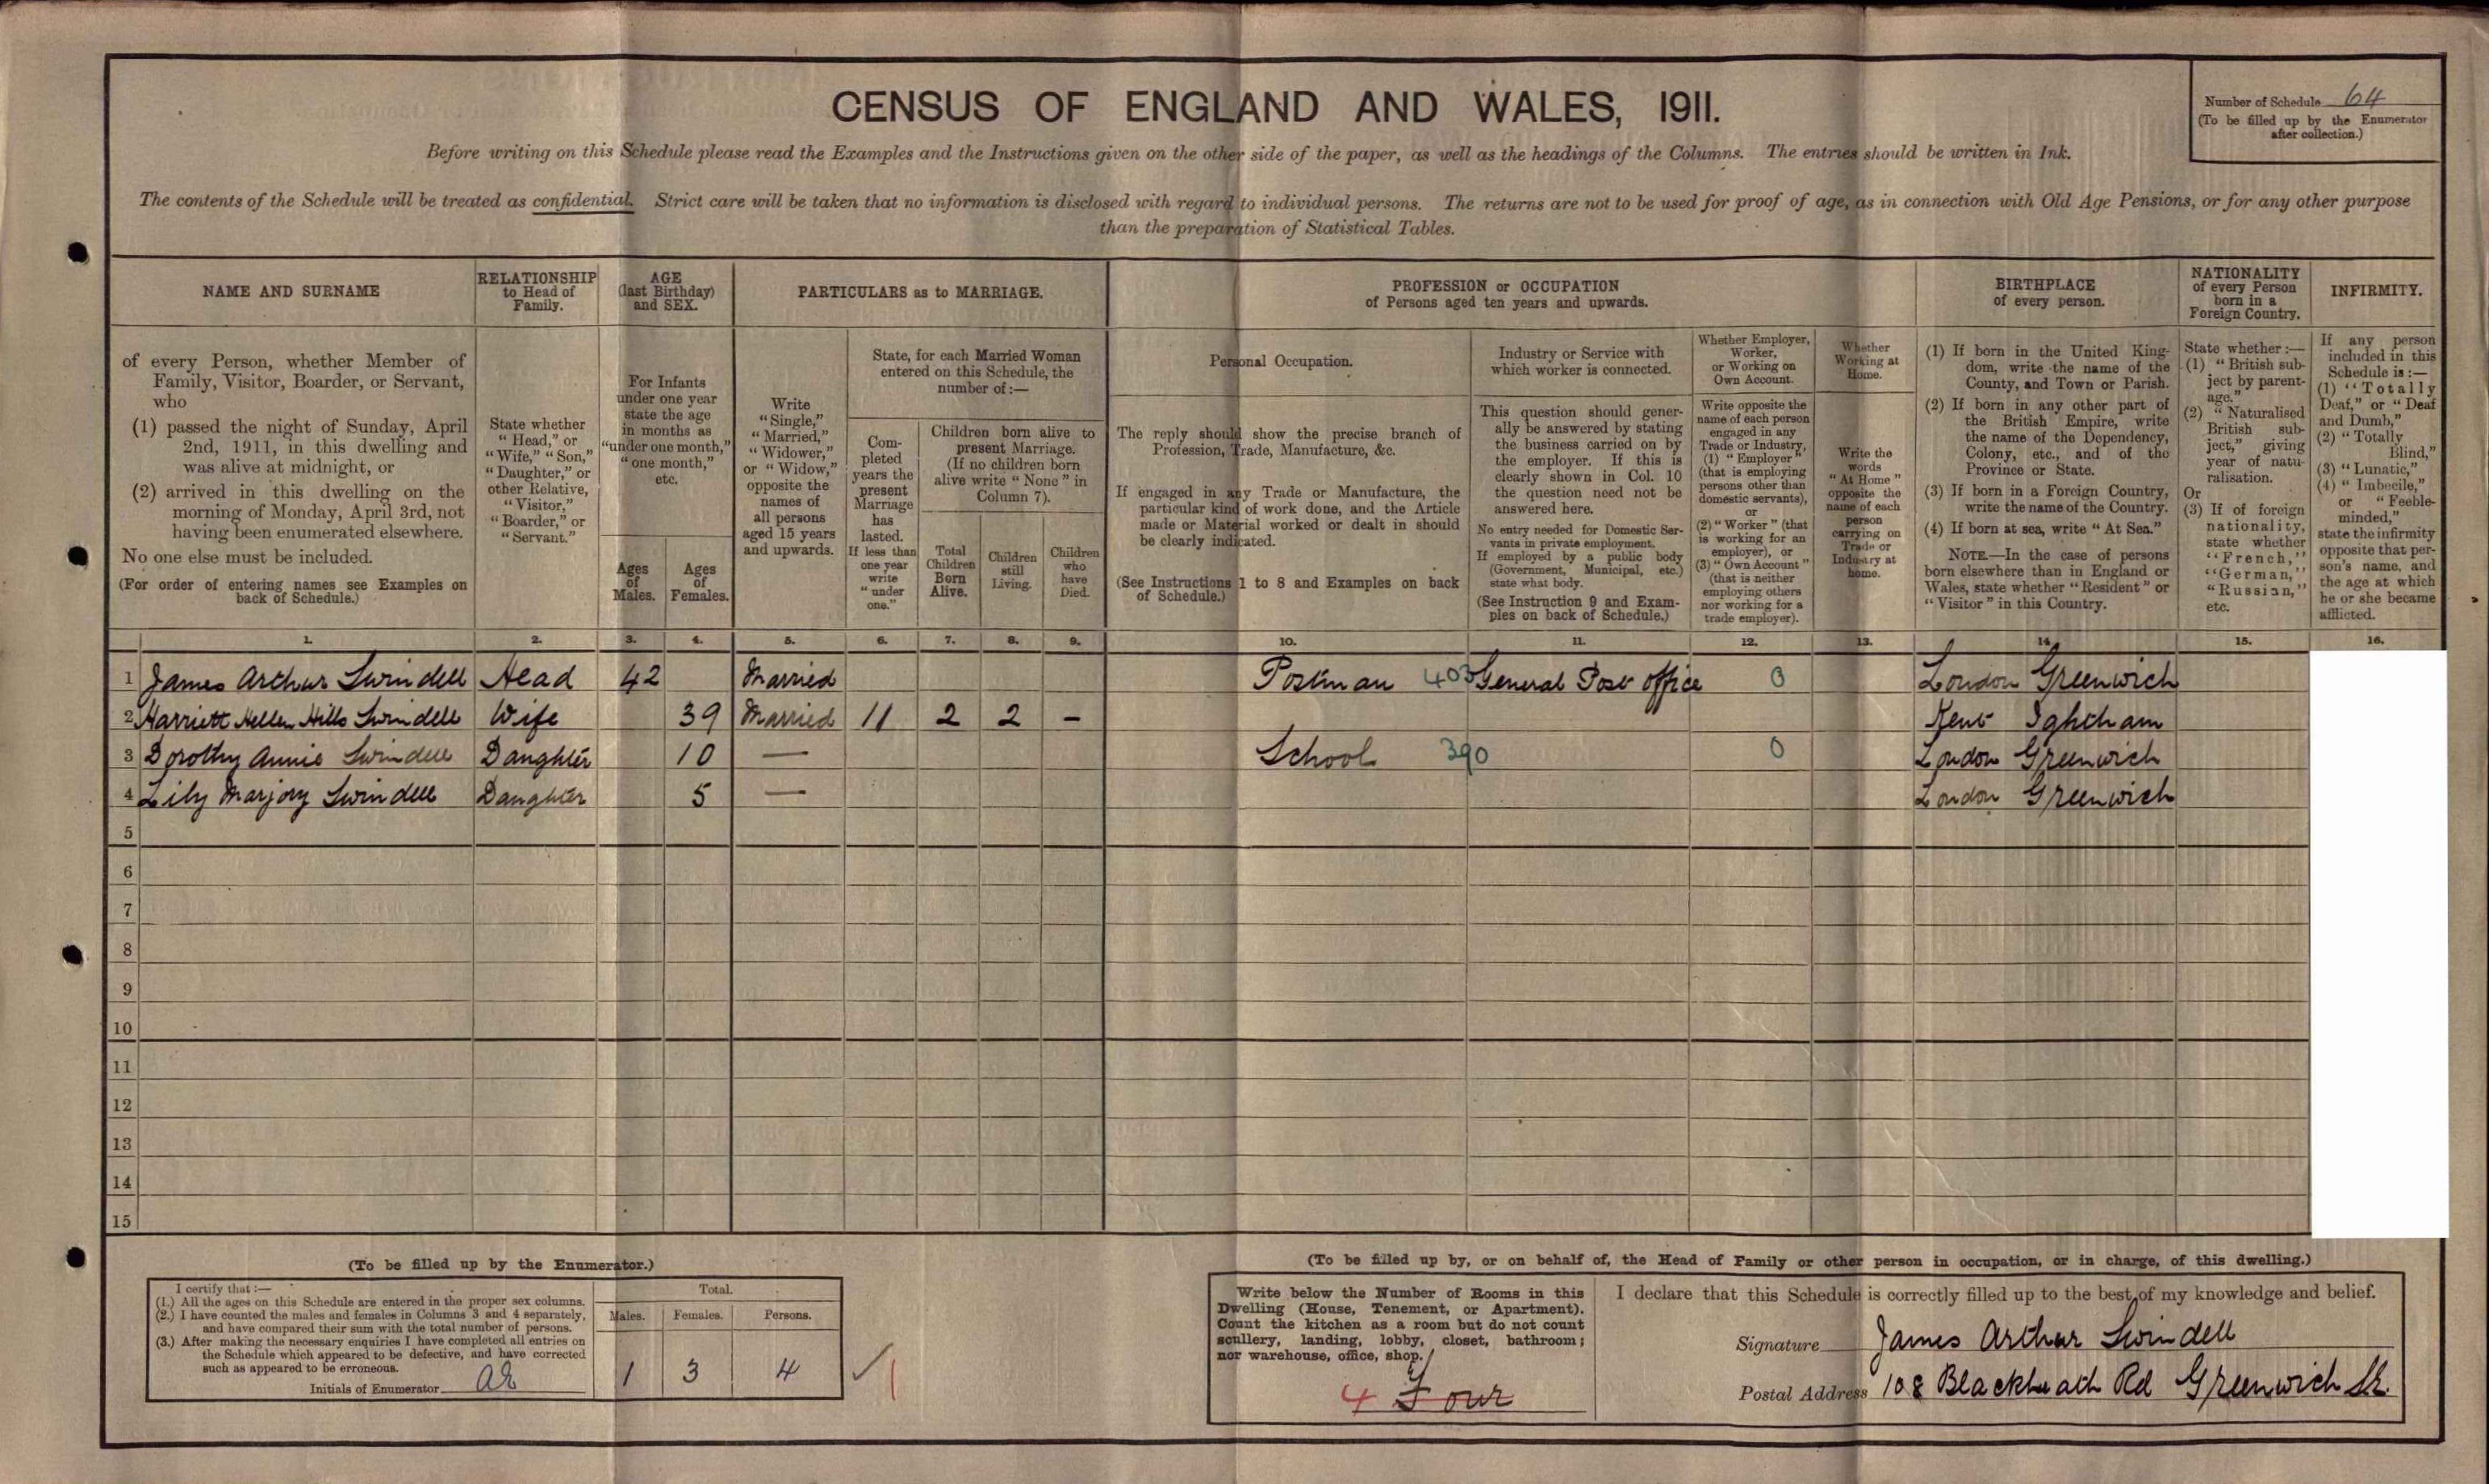 CENSUS OF ENGLAND AND WALES, 1911.
Number of Schedule 64
(To be filled up by the Enumerator
after collection.)
Before writing on this Schedule please read the Examples and the Instructions given on the other side of the paper, as well as the headings of the Columns. The entries should be written in Ink.
The contents of the Schedule will be treated as confidential. Strict care will be taken that no information is disclosed with regard to individual persons. The returns are not to be used for proof of age, as in connection with Old Age Pensions, or for any other purpose
than the preparation of Statistical Tables.
NAME AND SURNAME
of every Person, whether Member of
Family, Visitor, Boarder, or Servant,
who
(1) passed the night of Sunday, April
2nd, 1911, in this dwelling and
was alive at midnight, or
(2) arrived in this dwelling on the
morning of Monday, April 3rd, not
having been enumerated elsewhere.
No one else must be included.
(For order of entering names see Examples on
back of Schedule.)
RELATIONSHIP
to Head of
Family.
State whether
"Head," or
"Wife," "Son,"
"Daughter," or
other Relative,
"Visitor,"
"Boarder," or
"Servant."
AGE
(last Birthday)
and SEX.
For Infants
under one year
state the age
in months as
"under one month,"
"one month,"
etc.
Ages
of
Males.
Ages
of
Females.
PARTICULARS as to MARRIAGE.
Write
"Single,"
"Married,"
"Widower,"
or "Widow,"
opposite the
names of
all persons
aged 15 years
and upwards.
State, for each Married Woman
entered on this Schedule, the
number of :—
Com-
pleted
years the
present
Marriage
has
lasted.
If less than
one year
write
"under
one."
Children born alive to
present Marriage.
(If no children born
alive write "None" in
Column 7).
Total
Children
Born
Alive.
Children
still
Living.
Children
who
have
Died.
PROFESSION or OCCUPATION
of Persons aged ten years and upwards.
Personal Occupation.
The reply should show the precise branch of
Profession, Trade, Manufacture, &c.
If engaged in any Trade or Manufacture, the
particular kind of work done, and the Article
made or Material worked or dealt in should
be clearly indicated.
(See Instructions 1 to 8 and Examples on back
of Schedule.)
Industry or Service with
which worker is connected.
This question should gener-
ally be answered by stating
the business carried on by
the employer. If this is
clearly shown in Col. 10
the question need not be
answered here.
No entry needed for Domestic Ser-
vants in private employment.
If employed by a public body
(Government, Municipal, etc.)
state what body.
(See Instruction 9 and Exam-
ples on back of Schedule.)
Whether Employer,
Worker,
or Working on
Own Account.
Write opposite the
name of each person
engaged in any
Trade or Industry,
(1) "Employer"
(that is employing
persons other than
domestic servants),
or
(2) "Worker" (that
is working for an
employer), or
(3) "Own Account"
(that is neither
employing others
nor working for a
trade employer).
Whether
Working at
Home.
Write the
words
"At Home"
opposite the
name of each
person
carrying on
Trade or
Industry at
home.
BIRTHPLACE
of every person.
(1) If born in the United King-
dom, write the name of the
County, and Town or Parish.
(2) If born in any other part of
the British Empire, write
the name of the Dependency,
Colony, etc., and of the
Province or State.
(3) If born in a Foreign Country,
write the name of the Country.
(4) If born at sea, write "At Sea."
NOTE.—In the case of persons
born elsewhere than in England or
Wales, state whether "Resident" or
"Visitor" in this Country.
NATIONALITY
of every Person
born in a
Foreign Country.
State whether :—
(1) "British sub-
ject by parent-
age."
(2) "Naturalised
British sub-
ject," giving
year of natu-
ralisation.
Or
(3) If of foreign
nationality,
state whether
"French,"
"German,"
"Russian,"
etc.
INFIRMITY.
If any person
included in this
Schedule is :—
(1) "Totally
Deaf," or "Deaf
and Dumb,"
(2) "Totally
Blind,"
(3) "Lunatic,"
(4) "Imbecile,"
or "Feeble-
minded,"
state the infirmity
opposite that per-
son's name, and
the age at which
he or she became
afflicted.
1. 2. 3. 4. 5. 6. 7. 8. 9. 10. 11. 12. 13. 14. 15. 16.
1 James Arthur Swindell Head 42 Married Postman 403 General Post office 0 London Greenwich
2 Harriett Hellen Hills Swindell Wife 39 Married 11 2 2 – Kent Ightham
3 Dorothy Annie Swindell Daughter 10 — School 390 0 London Greenwich
4 Lily Marjory Swindell Daughter 5 — London Greenwich
5
6
7
8
9
10
11
12
13
14
15
(To be filled up by the Enumerator.)
I certify that :—
(1.) All the ages on this Schedule are entered in the proper sex columns.
(2.) I have counted the males and females in Columns 3 and 4 separately,
and have compared their sum with the total number of persons.
(3.) After making the necessary enquiries I have completed all entries on
the Schedule which appeared to be defective, and have corrected
such as appeared to be erroneous.
Initials of Enumerator
Total.
Males. Females. Persons.
1 3 4
(To be filled up by, or on behalf of, the Head of Family or other person in occupation, or in charge, of this dwelling.)
Write below the Number of Rooms in this
Dwelling (House, Tenement, or Apartment).
Count the kitchen as a room but do not count
scullery, landing, lobby, closet, bathroom;
nor warehouse, office, shop.
4 Four
I declare that this Schedule is correctly filled up to the best of my knowledge and belief.
Signature James Arthur Swindell
Postal Address 108 Blackheath Rd Greenwich S.E.